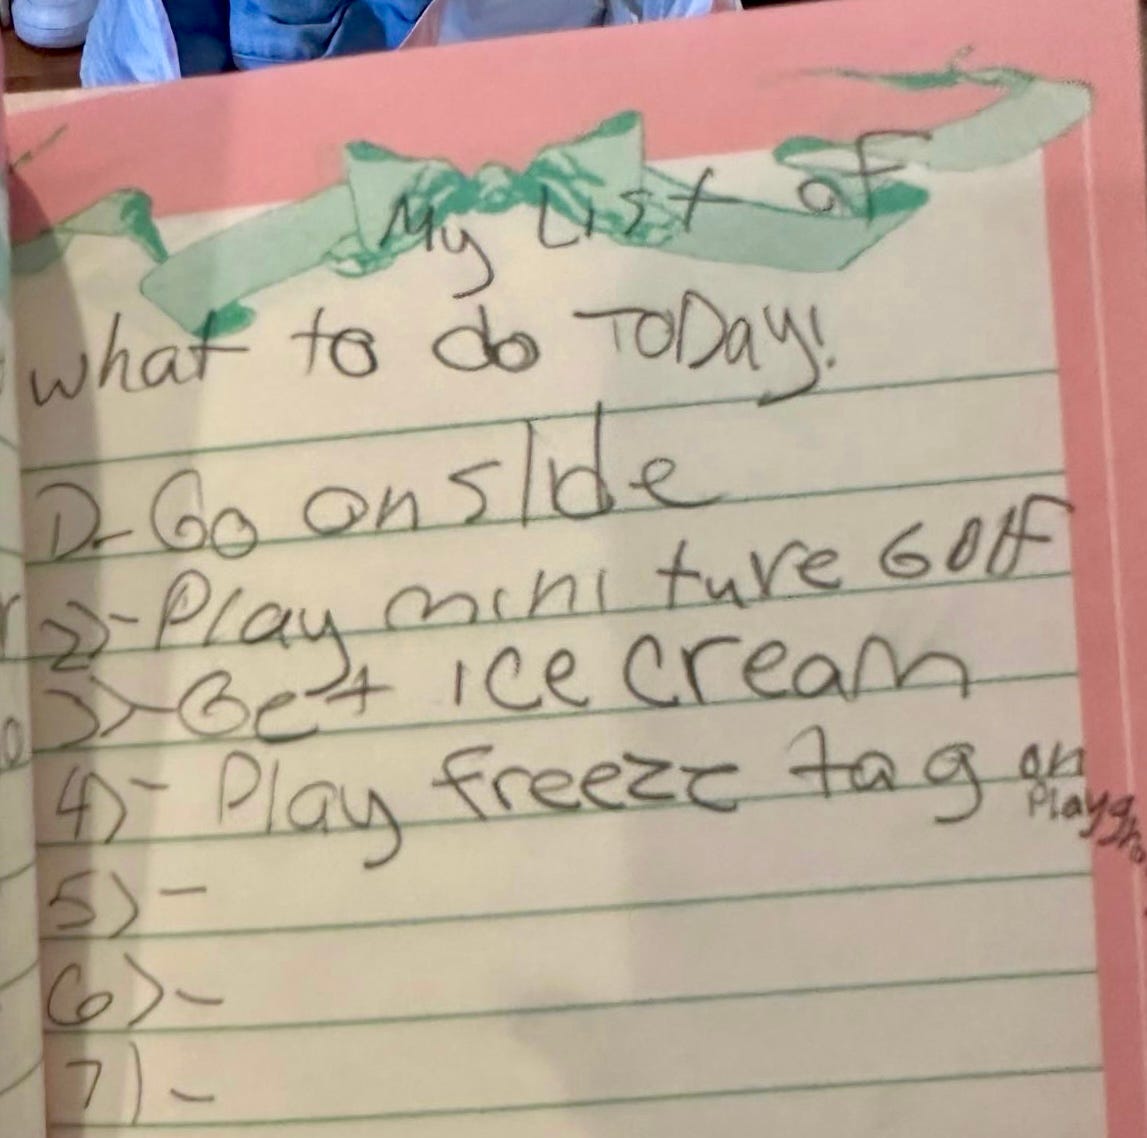 My List of
what to do ToDay!
1)- Go on slide
2)- Play mini ture Golf
3)- Get ice cream
4)- Play freeze tag on
Playgro
5) -
6) -
7) -